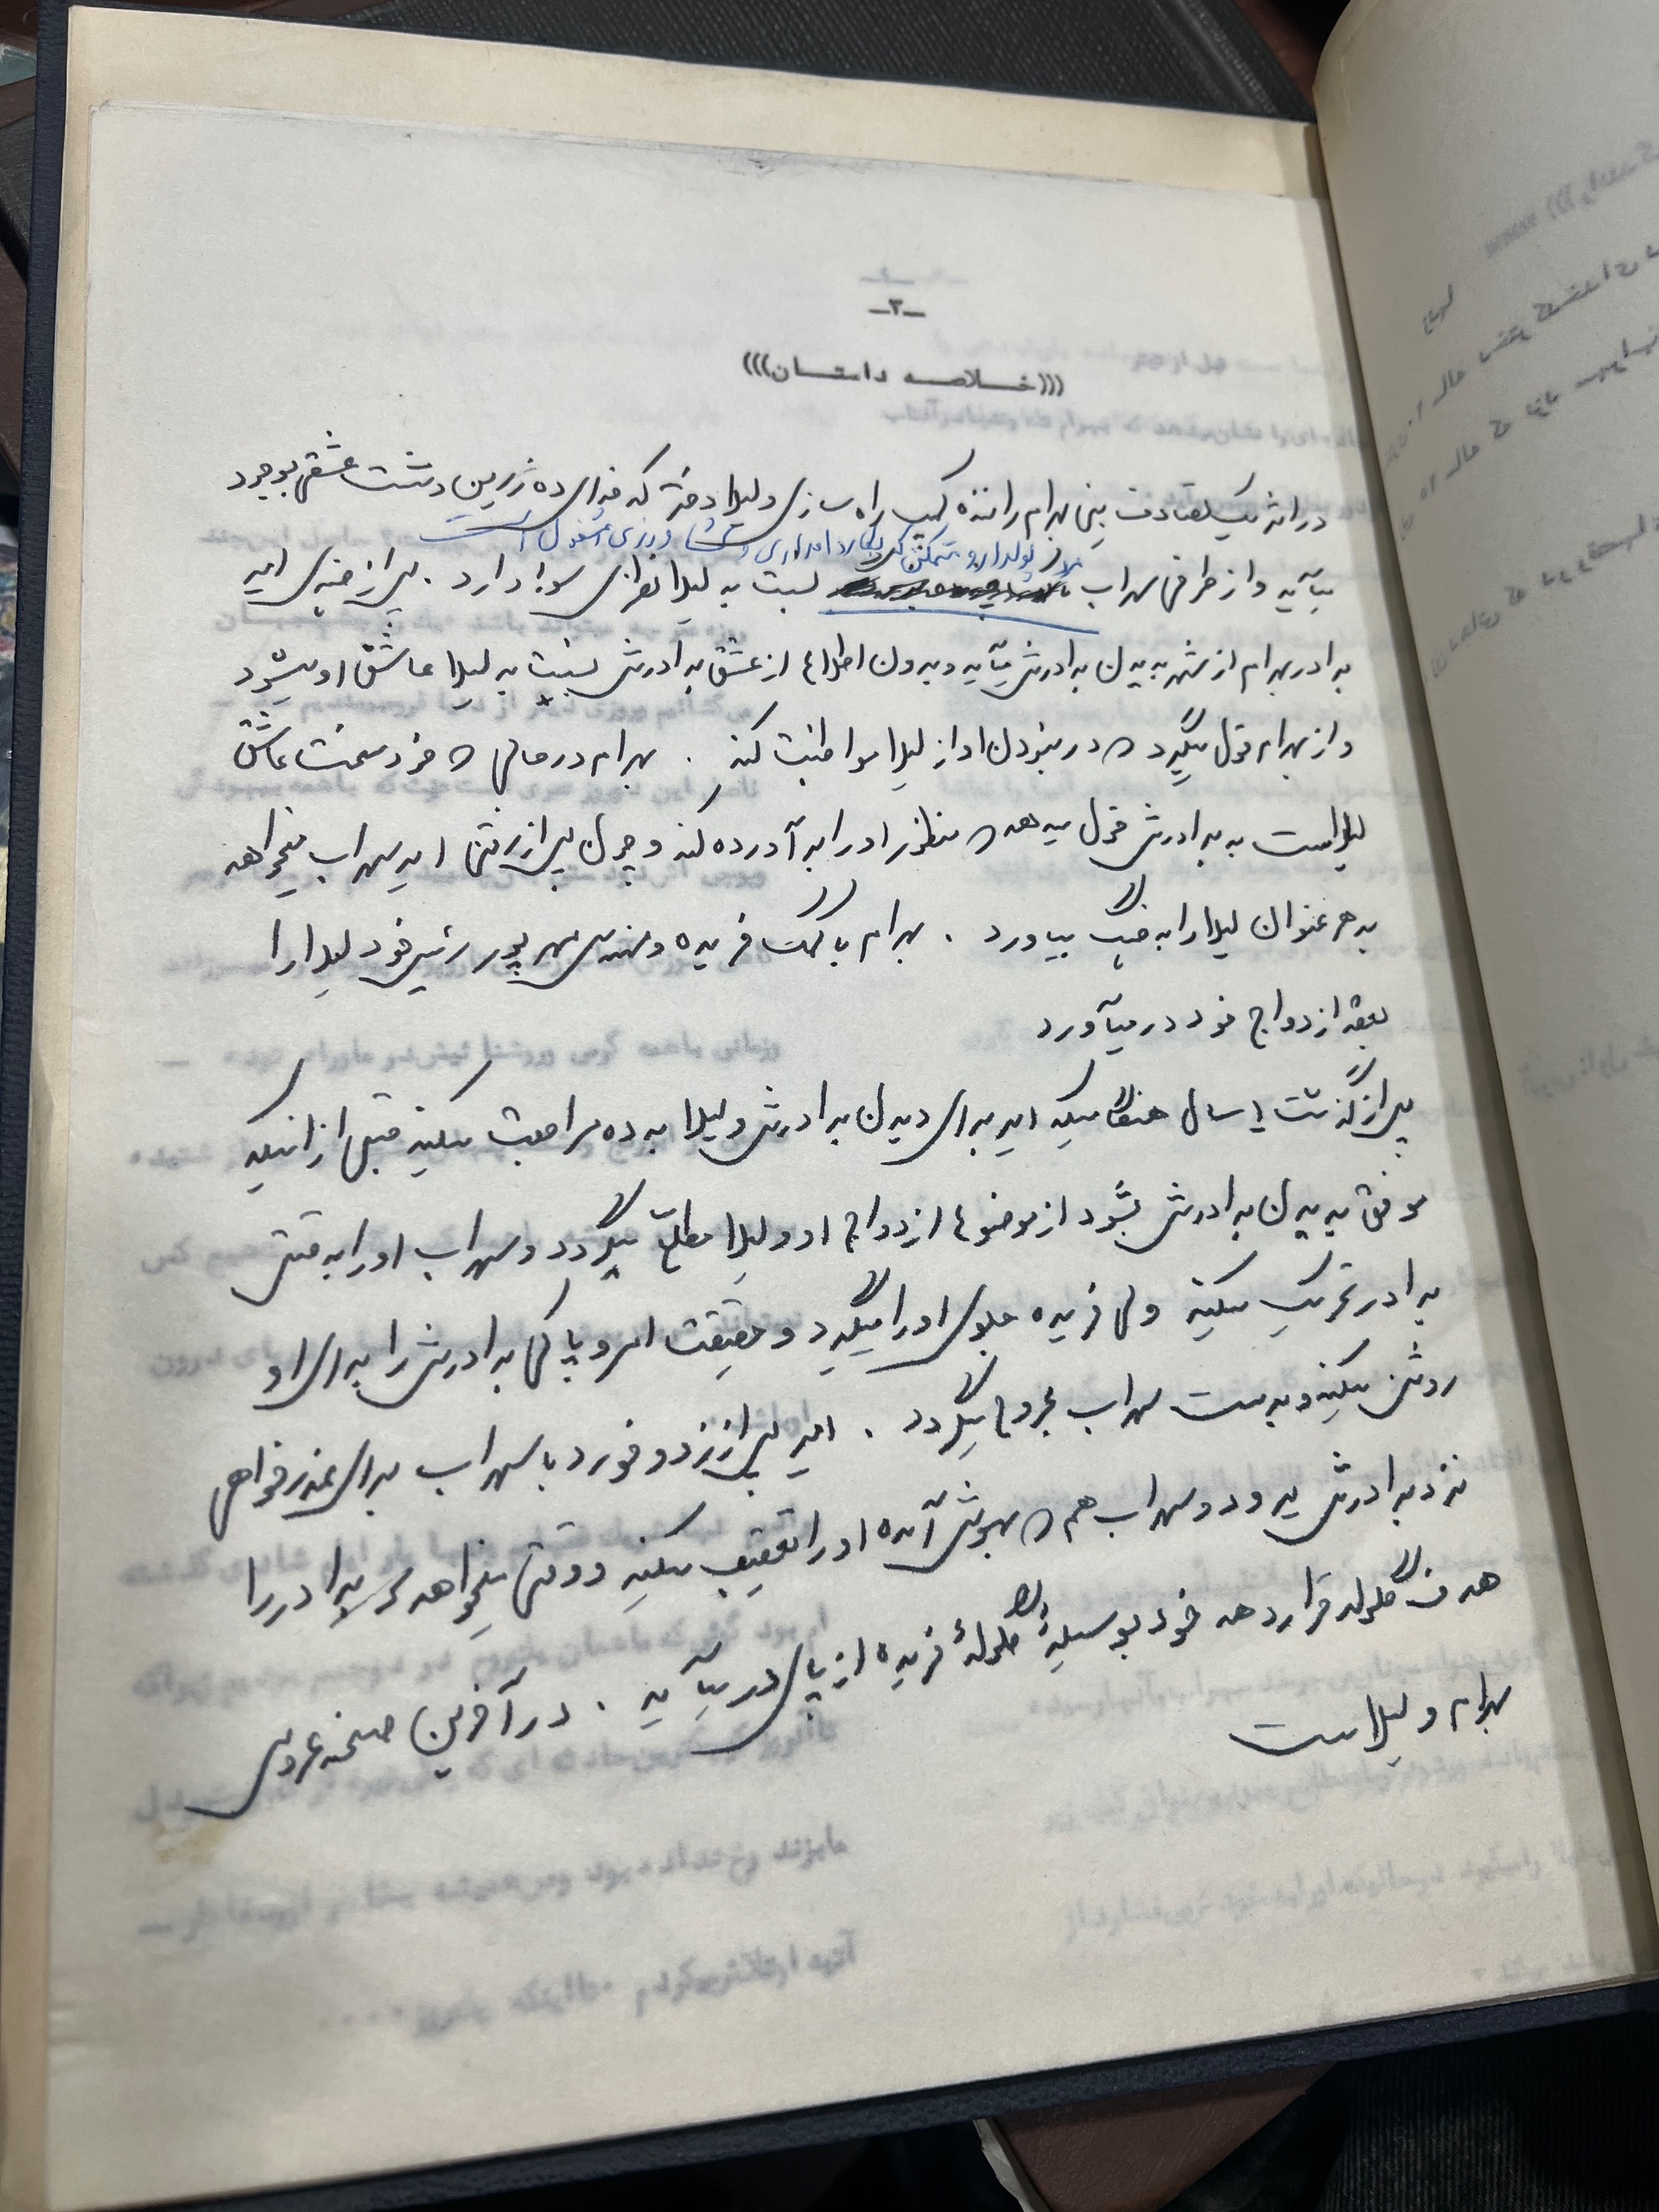 -۳-
(((خلاصه داستان)))
در اثر یک تصادف بین بهرام راننده کمپ راه سازی و لیلا دختر کدخدای ده زرین دشت عشقی بوجود
مرد پولدار و متمکن که بکار دامداری و کشاورزی مشغول است
میآید و از طرفی سهراب نسبت به لیلا نظرای سوء دارد . پس از چندی امیر
برادر بهرام از شهر به دیدن برادرش میآید و بدون اطلاع از عشق برادرش نسبت به لیلا عاشق او میشود
و از بهرام قول میگیرد که در نبودن او از لیلا مواظبت کند . بهرام در حالی که خود سخت عاشق
لیلاست به برادرش قول میدهد که منظور او را برآورده کند و چون پس از رفتن امیر سهراب میخواهد
به هر عنوان لیلا را به چنگ بیاورد . بهرام با کمک فریده و مهندس مهرپور رئیس خود لیلا را
بعقد ازدواج خود در میآورد
پس از گذشت ۱ سال هنگامیکه امیر برای دیدن برادرش و لیلا به ده مراجعت میکند قبل از اینکه
موفق به دیدن برادرش بشود از موضوع ازدواج او و لیلا مطلع میگردد و سهراب او را به قتل
برادر تحریک میکند ولی فریده جلوی او را میگیرد و حقیقت امر و پاکی برادرش را برای او
روشن میکند و بدست سهراب مجروح میگردد . امیر پس از زد و خورد با سهراب برای عذرخواهی
نزد برادرش میرود و سهراب هم که بهوش آمده او را تعقیب میکند و وقتی میخواهد هر دو برادر را
هدف گلوله قرار دهد خود بوسیلهٔ گلولهٔ فریده از پای در میآید . در آخرین صحنه عروسی
بهرام و لیلاست